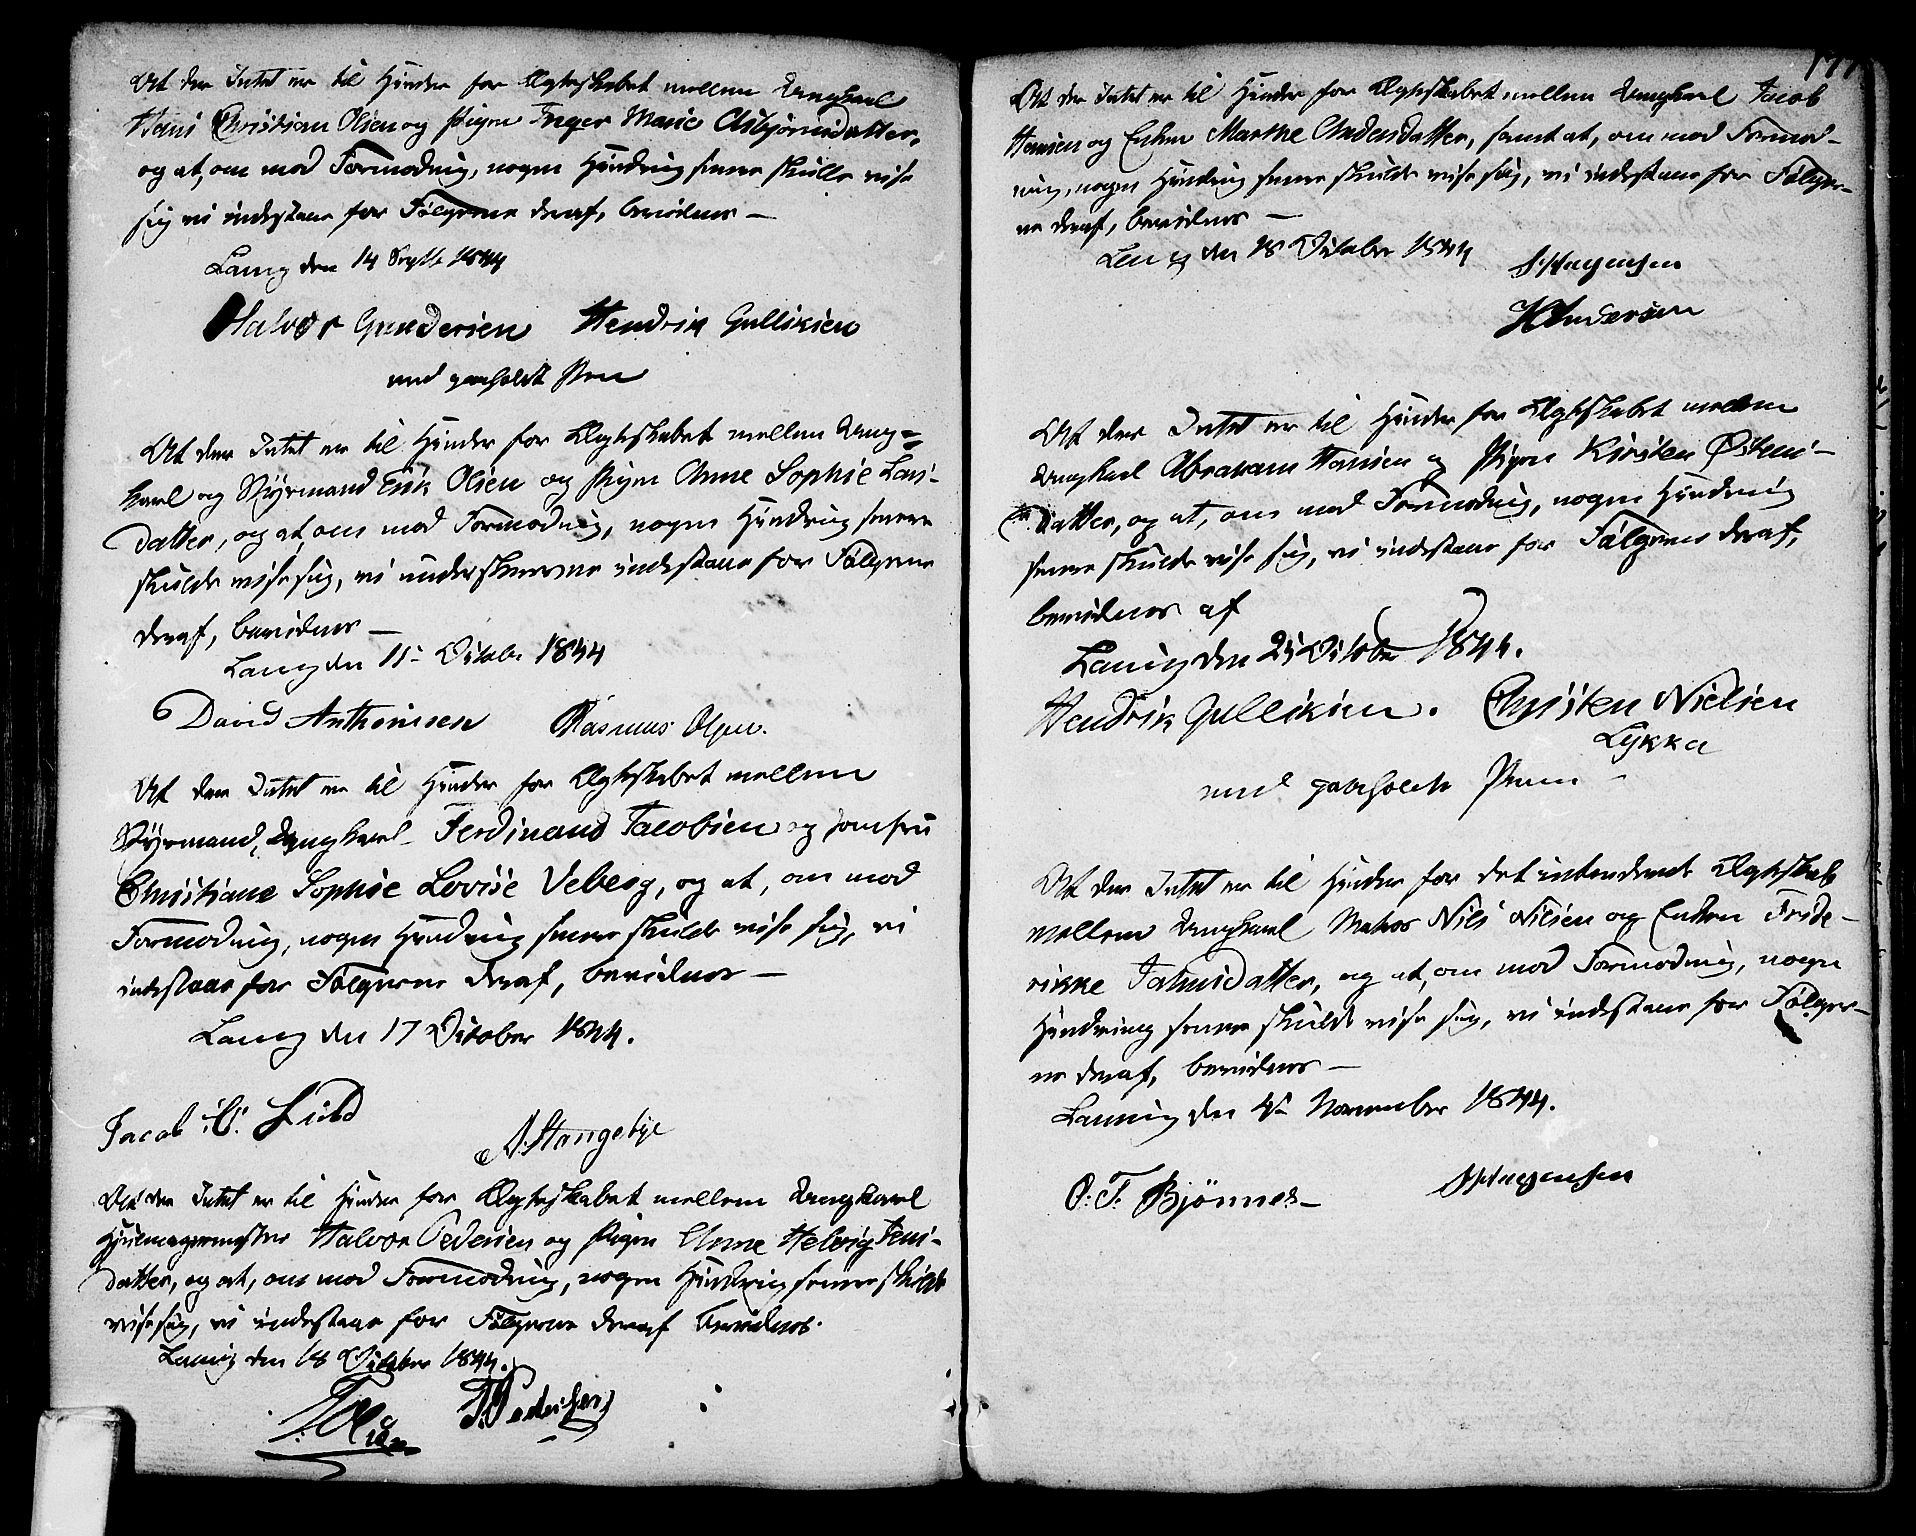 At der Intet er til Hinder for Ægteskabet mellem Ungkarl
Hans Christian Olsen og Pigen Inger Marie Asbjørnsdatter,
og at, om mod Formodning, nogen Hindring senere skulle vise
sig vi indestaae for Følgerne deraf, bevidnes —
Laurvig den 14 Septb 1844
Halvor Gundersen Hendrik Gulliksen
med paaholdt Pen
At der Intet er til Hinder for Ægteskabet mellem Ung=
karl og Styrmand Erik Olsen og Pigen Anne Sophie Lars-
datter, og at, om mod Formodning, nogen Hindring senere
skulde vise sig, vi underskrevne indestaae for Følgerne
deraf, bevidnes —
Laurvig den 11 Octobr 1844
David Anthonisen Rasmus Olsen.
At der Intet er til Hinder for Ægteskabet mellem
Styrmand, Ungkarl Ferdinand Jacobsen og Jomfru
Christiane Sophie Lovise Veberg, og at, om mod
Formodning, nogen Hindring senere skulde vise sig, vi
indestaae for Følgerne deraf, bevidnes —
Laurvig den 17 October 1844.
Jacob C. Lund
A. Stangebye
At der Intet er til Hinder for Ægteskabet mellem Ungkarl
Hjulmagermester Halvor Pedersen og Pigen Anne Helvig Jens-
datter, og at, om mod Formodning, nogen Hindring senere skulde
vise sig, vi indestaae for Følgerne deraf bevidnes.
Laurvig den 18 October 1844.
T. Pedersen
177
At der Intet er til Hinder for Ægteskabet mellem Ungkarl Jacob
Hansen og Enken Marthe Andersdatter, samt at, om mod Formod-
ning, nogen Hindring senere skulde vise sig, vi indestaae for Følger-
ne deraf, bevidnes —
Laurvig den 18 October 1844
S. Hagensen
H Andersen
At der Intet er til Hinder for Ægteskabet mellem
Ungkarl Abraham Hansen og Pigen Kirsten Østens-
datter, og at, om mod Formodning, nogen Hindring
senere skulde vise sig, vi indestaae for Følgerne deraf,
bevidnes af
Laurvig den 25 October 1844.
Hendrik Gulliksen. Christen Nielsen
Lykka
med paaholdte Penne
At der Intet er til Hinder for det intenderede Ægteskab
mellem Ungkarl Matros Nils Nilsen og Enken Frede-
rikke Jahnsdatter, og at, om mod Formodning, nogen
Hindring senere skulde vise sig, vi indestaae for Følger-
ne deraf, bevidnes —
Laurvig den 4de November 1844.
O. T. Bjønnes S Hagensen